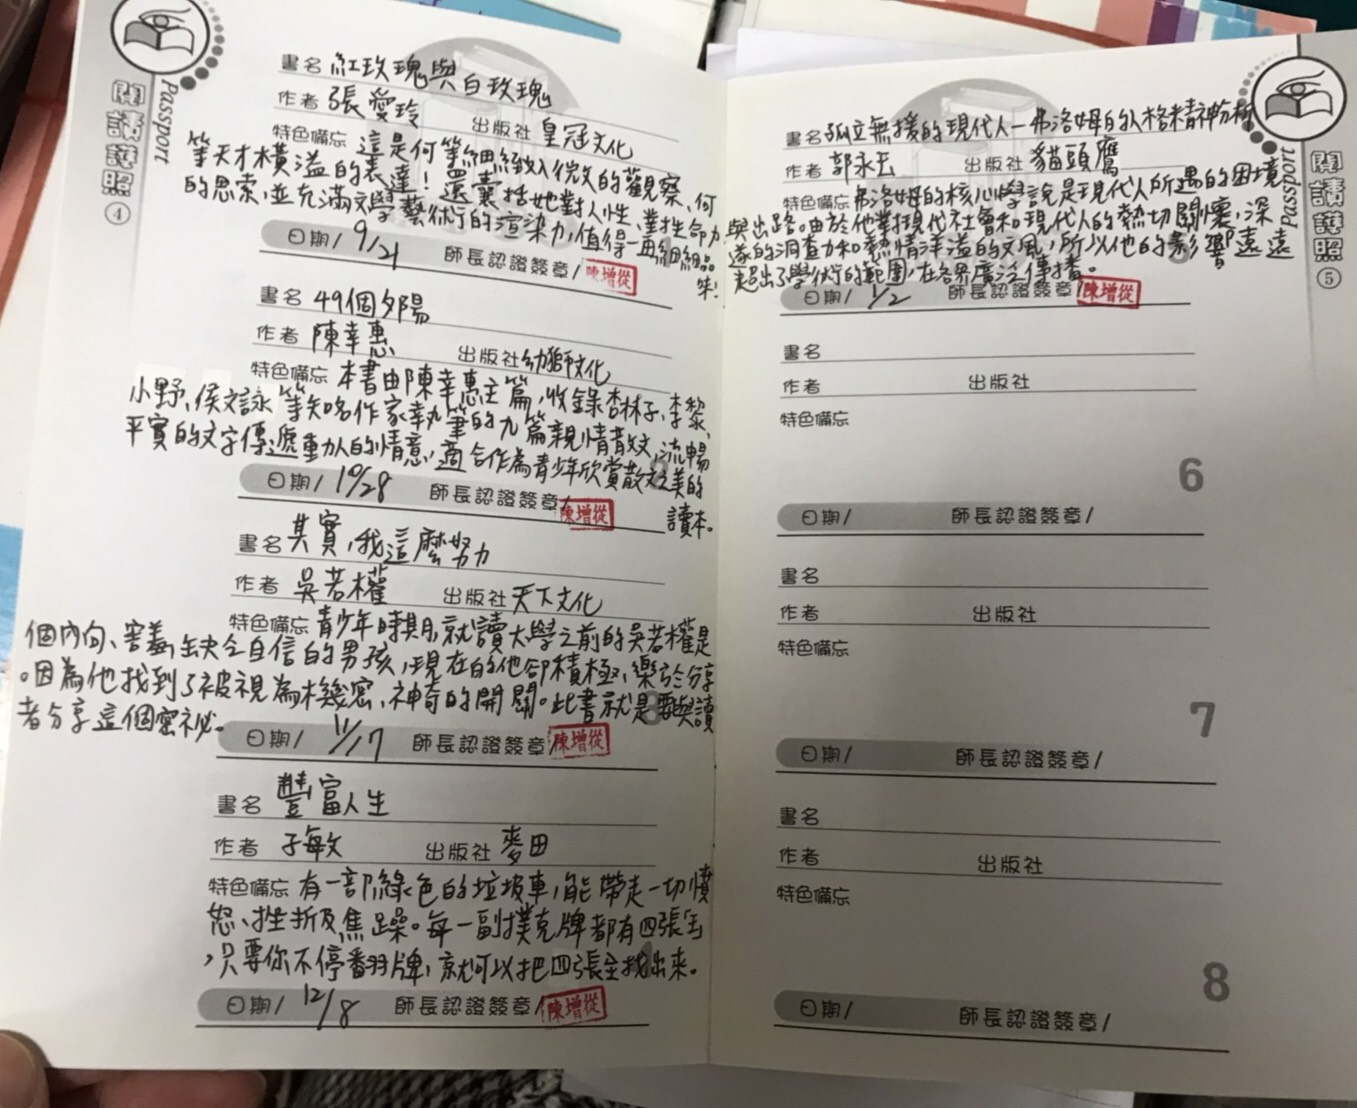 閱讀護照
④
Passport
書名 紅玫瑰與白玫瑰
作者 張愛玲 出版社 皇冠文化
特色備忘 這是何等細緻入微的觀察,何
等天才橫溢的表達!還囊括她對人性、對
的思索,並充滿文學藝術的渲染力,值得一再細細品
味!
日期/ 9/21 師長認證簽章/ 陳增從
書名 49個夕陽
作者 陳幸惠 出版社 幼獅文化
特色備忘 本書由陳幸惠主篇,收錄杏林子、李黎、
小野、侯文詠等知名作家執筆的九篇親情散文,流暢
平實的文字傳遞動人的情意,適合作為青少年欣賞散文之美的
讀本。
2
日期/ 10/28 師長認證簽章/ 陳增從
書名 其實,我這麼努力
作者 吳若權 出版社 天下文化
特色備忘 青少年時期,就讀大學之前的吳若權是
個內向、害羞,缺乏自信的男孩,現在的他卻積極,樂於分享
。因為他找到了被視為機密、神奇的開關。此書就是要與讀
者分享這個密祕。
3
日期/ 11/17 師長認證簽章/ 陳增從
書名 豐富人生
作者 子敏 出版社 麥田
特色備忘 有一部綠色的垃圾車,能帶走一切憤
怒、挫折及焦躁。每一副撲克牌都有四張
,只要你不停翻牌,就可以把四張全找出來。
4
日期/ 12/8 師長認證簽章/ 陳增從
閱讀護照
⑤
Passport
書名 孤立無援的現代人—弗洛姆的人格精神分析
作者 郭永玉 出版社 貓頭鷹
特色備忘 弗洛姆的核心學說是現代人所遇的困境
與出路。由於他對現代社會和現代人的熱切關懷,深
邃的洞查力和熱情洋溢的文風,所以他的影響遠遠
超出了學術的範圍,在各界廣泛傳播。
5
日期/ 1/2 師長認證簽章/ 陳增從
書名
作者 出版社
特色備忘
6
日期/ 師長認證簽章/
書名
作者 出版社
特色備忘
7
日期/ 師長認證簽章/
書名
作者 出版社
特色備忘
8
日期/ 師長認證簽章/